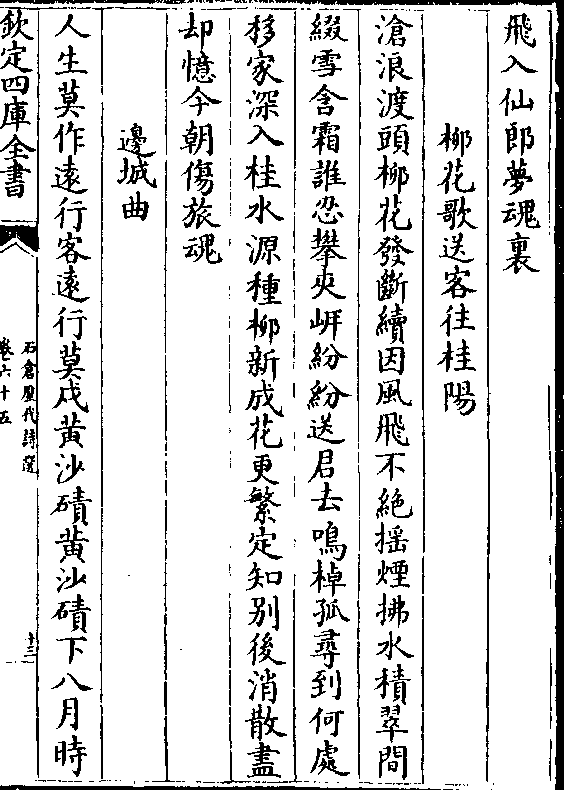 飛入仙郎夢魂裏
栁花歌送客往桂陽
滄浪渡頭栁花發斷續因風飛不絶揺煙拂水積翠間
綴雪含霜誰忍攀夾岍紛紛送君去鳴棹孤尋到何處
移家深入桂水源種栁新成花更繁定知别後消散盡
却憶今朝傷旅魂
邊城曲
人生莫作遠行客遠行莫戍黄沙磧黄沙磧下八月時
欽定四庫全書
石倉歴代詩選
卷六十五
十三